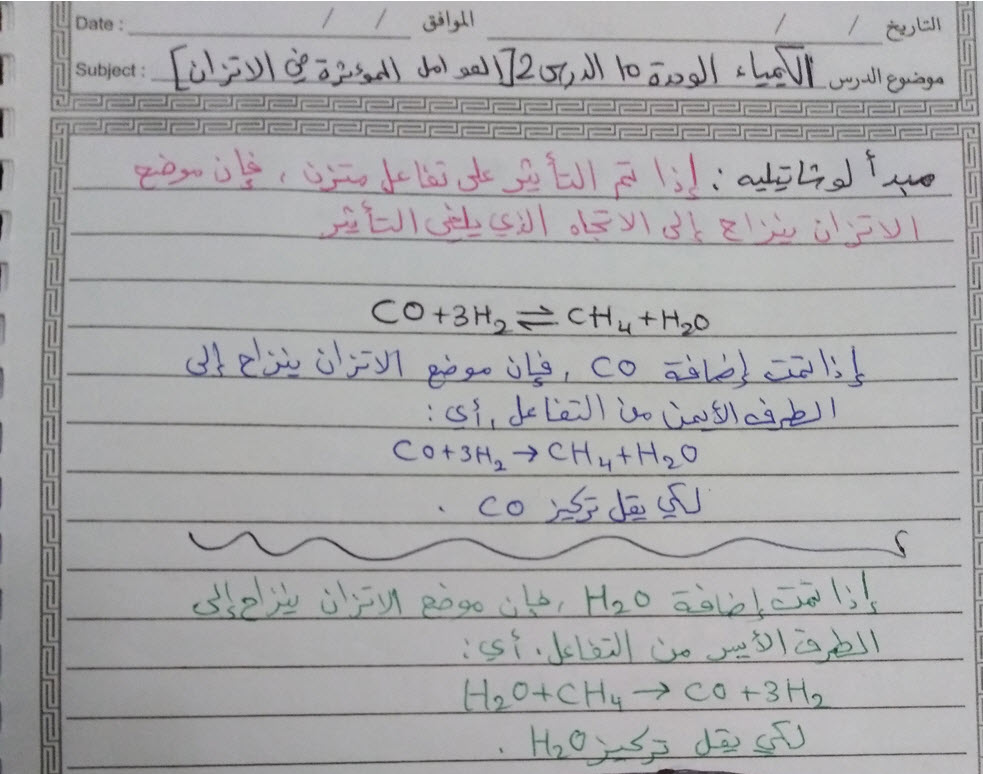 التاريخ / / الموافق / / Date :
موضوع الدرس الكيمياء الوحدة 10 الدرس 2 [العوامل المؤثرة في الاتزان] Subject :
مبدأ لوشاتيليه : إذا تم التأثير على تفاعل متزن ، فإن موضع
الاتزان ينزاح إلى الاتجاه الذي يلغي التأثير
CO+3H₂⇌CH₄+H₂O
إذا تمت إضافة CO ، فإن موضع الاتزان ينزاح إلى
الطرف الأيمن من التفاعل ، أي :
CO+3H₂→CH₄+H₂O
لكي يقل تركيز CO .
إذا تمت إضافة H₂O ، فإن موضع الاتزان ينزاح إلى
الطرف الأيسر من التفاعل ، أي :
H₂O+CH₄→CO+3H₂
لكي يقل تركيز H₂O .